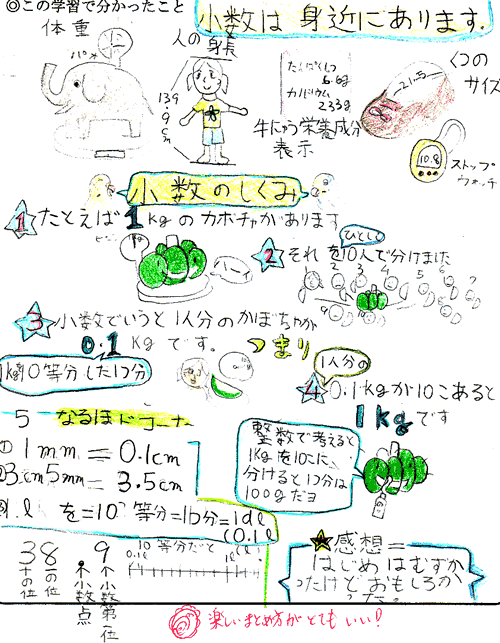 ◎この学習で分かったこと
小数は身近にあります.
体重
人の身長
139.9cm
たんぱくしつ
6.6g
カルシウム
233g
牛にゅう栄養成分
表示
くつの
サイズ
21.5
10.8
ストップ
ウォッチ
小数のしくみ
1 たとえば1kgのカボチャがあります
2 それを10人で分けました
ひとしく
1 2 3 4 5 6 7
3 小数でいうと1人分のかぼちゃが
0.1kgです.
つまり
1kgを10等分した1つ分
1人分の
4 0.1kgが10こあると
1kgです
5 なるほどコーナー
①1mm=0.1cm
②3cm5mm=3.5cm
整数で考えると
1kgを10こに、
分けると1つ分は
100gだヨ
1lを=10等分=1つ分=1dl
(0.1l
10等分だと
0.1l
1l
38.9
十の位
一の位
小数点
小数第一位
★感想=
はじめはむずか
ったけどおもしろか
った.
楽しいまとめ方がとてもいい!